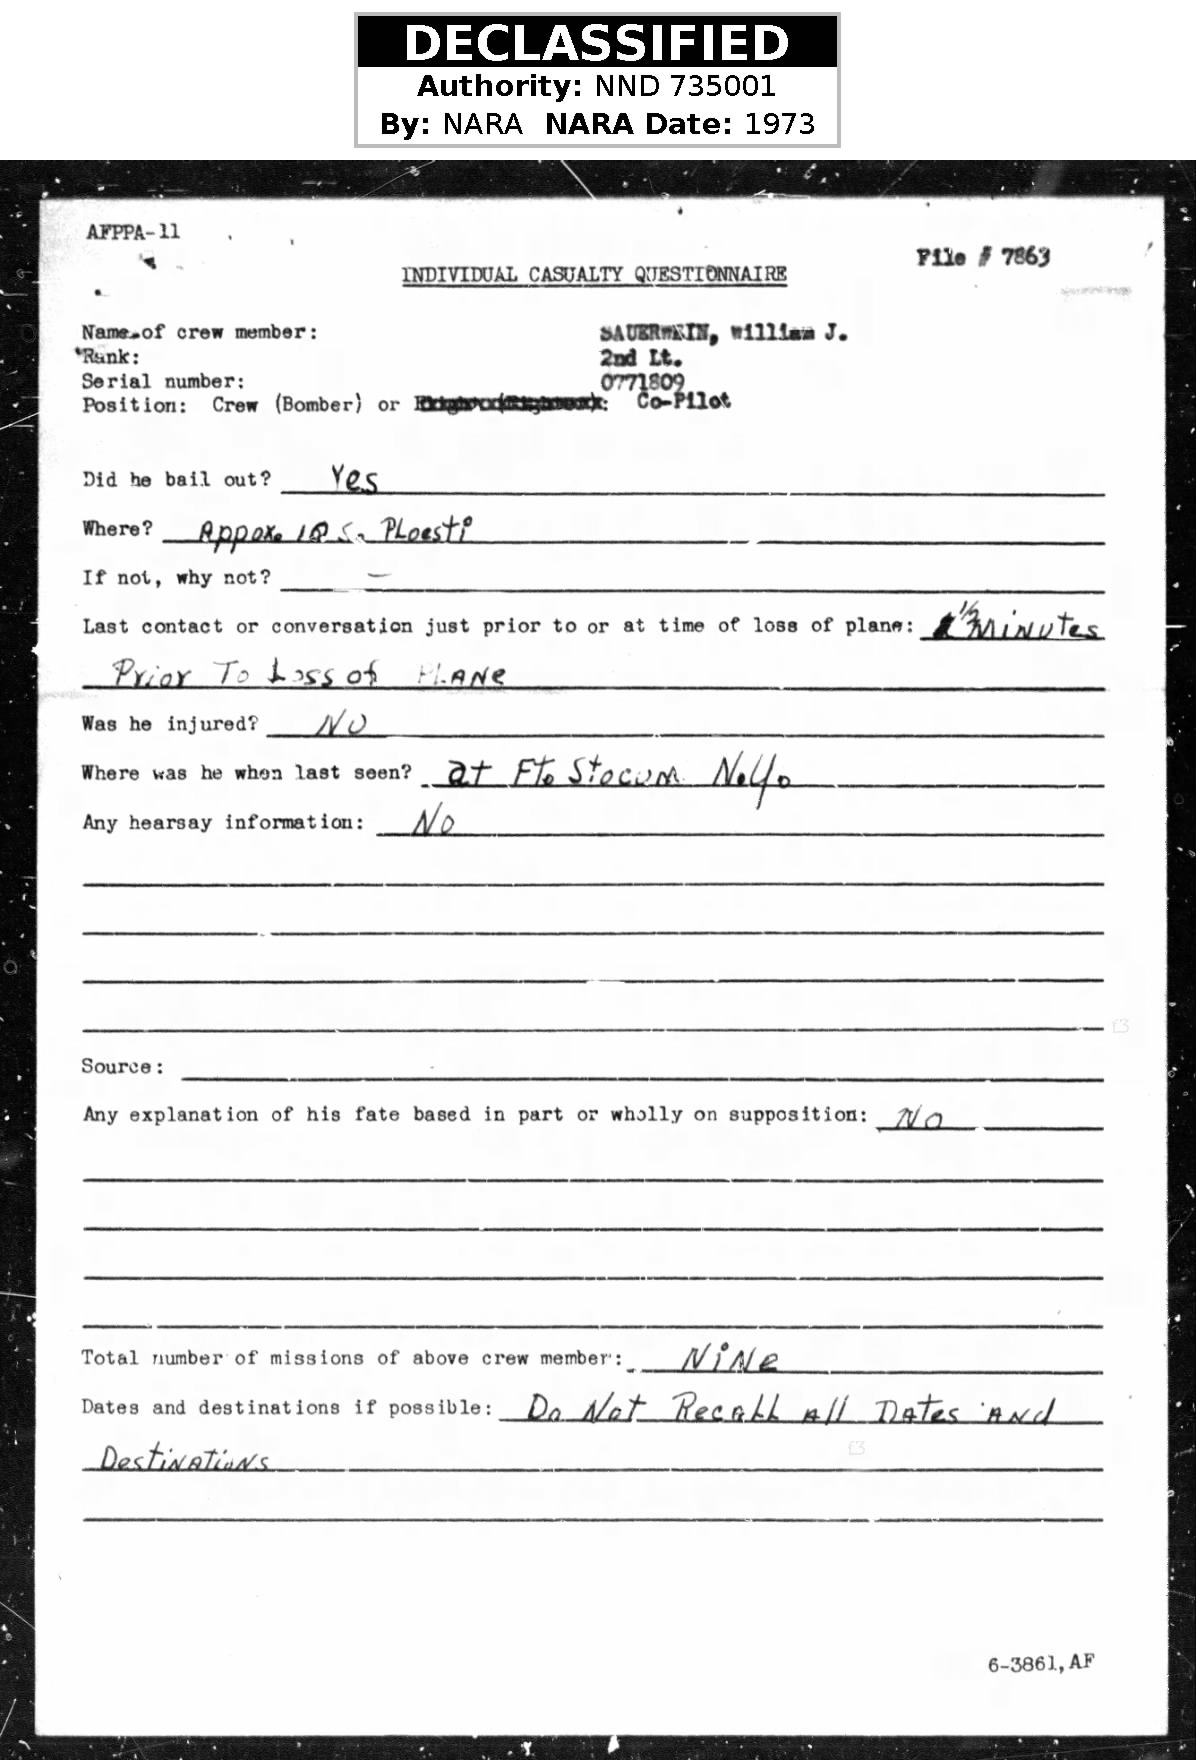 DECLASSIFIED
Authority: NND 735001
By: NARA NARA Date: 1973
AFPPA-11
File # 7863
INDIVIDUAL CASUALTY QUESTIONNAIRE
Name of crew member: SAUERWEIN, William J.
Rank: 2nd Lt.
Serial number: 0771809
Position: Crew (Bomber) or : Co-Pilot
Did he bail out? Yes
Where? Appox. 10 S. PLoesti
If not, why not? —
Last contact or conversation just prior to or at time of loss of plane: 1/2 Minutes
Prior To Loss of PLANe
Was he injured? NO
Where was he when last seen? at Ft. Slocum N.Y.
Any hearsay information: No
Source:
Any explanation of his fate based in part or wholly on supposition: No
Total number of missions of above crew member: NiNe
Dates and destinations if possible: Do Not Recall All Dates ANd
DestiNAtioNs
6-3861, AF